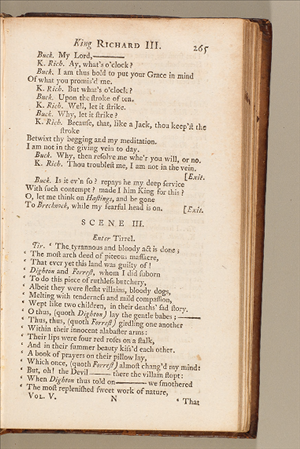 King RICHARD III. 265
Buck. My Lord,————
K. Rich. Ay, what's o'clock?
Buck. I am thus bold to put your Grace in mind
Of what you promis'd me.
K. Rich. But what's o'clock?
Buck. Upon the ſtroke of ten.
K. Rich. Well, let it ſtrike.
Buck. Why, let it ſtrike?
K. Rich. Becauſe, that, like a Jack, thou keep'ſt the
ſtroke
Betwixt thy begging and my meditation.
I am not in the giving vein to day.
Buck. Why, then reſolve me whe'r you will, or no.
K. Rich. Thou troubleſt me, I am not in the vein.
[Exit.
Buck. Is it ev'n ſo? repays he my deep ſervice
With ſuch contempt? made I him King for this?
O, let me think on Haſtings, and be gone
To Brecknock, while my fearful head is on. [Exit.
SCENE III.
Enter Tirrel.
Tir. ‘ The tyrannous and bloody act is done;
‘ The moſt arch deed of piteous maſſacre,
‘ That ever yet this land was guilty of!
‘ Dighton and Forreſt, whom I did ſuborn
‘ To do this piece of ruthleſs butchery,
‘ Albeit they were fleſht villains, bloody dogs,
‘ Melting with tenderneſs and mild compaſſion,
‘ Wept like two children, in their deaths' ſad ſtory.
‘ O thus, (quoth Dighton) lay the gentle babes;——
‘ Thus, thus, (quoth Forreſt) girdling one another
‘ Within their innocent alabaſter arms:
‘ Their lips were four red roſes on a ſtalk,
‘ And in their ſummer beauty kiſs'd each other.
‘ A book of prayers on their pillow lay,
‘ Which once, (quoth Forreſt) almoſt chang'd my mind:
‘ But, oh! the Devil—— there the villain ſtopt:
‘ When Dighton thus told on——— we ſmothered
‘ The moſt repleniſhed ſweet work of nature,
VOL. V. N ‘ That